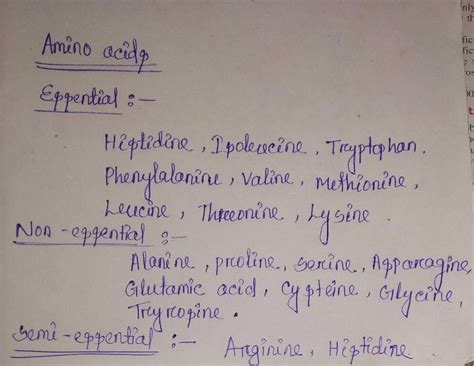 Amino acids
Essential :-
Histidine, Isoleucine, Tryptophan,
Phenylalanine, Valine, Methionine,
Leucine, Threonine, Lysine.
Non-essential :-
Alanine, proline, serine, Asparagine,
Glutamic acid, cysteine, Glycine,
Tryrosine.
Semi-essential :-
Arginine, Histidine.